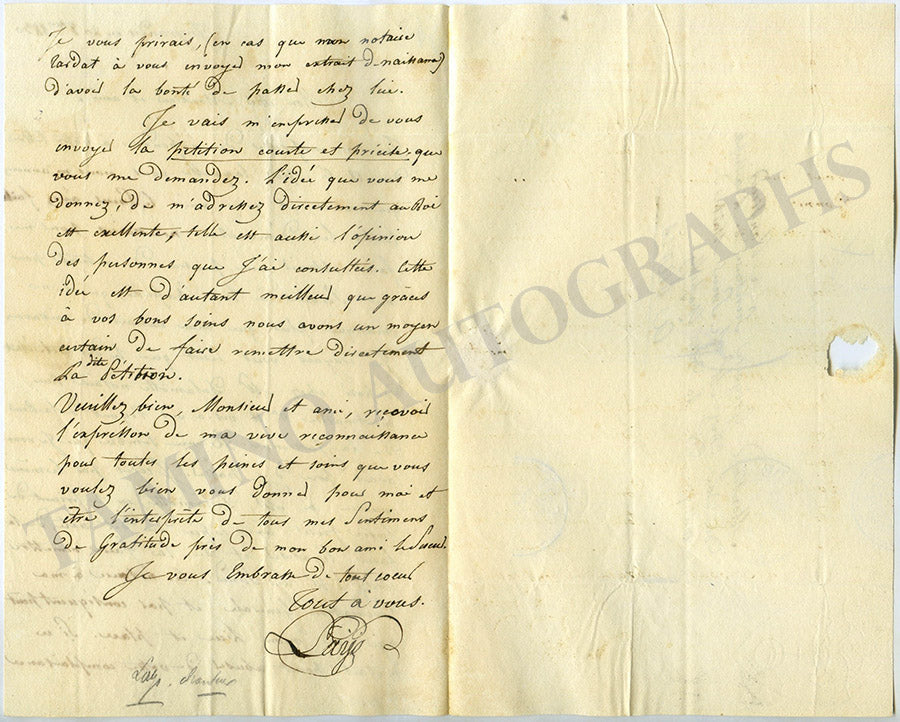 Je vous prirais, (en cas que mon notaire
tardat à vous envoyer mon extrait de naissance)
d'avoir la bonté de passer chez lui.
Je vais m'empresser de vous
envoyer la petition courte et précise que
vous me demandez. L'idée que vous me
donnez, de m'adresser directement au Roi
est exellente, telle est aussi l'opinion
des personnes que J'ai consultées. Cette
idée est d'autant meilleur que grâces
à vos bons soins nous avons un moyen
certain de faire remettre directement
La dite Petition.
Veuillez bien, Monsieur et ami, recevoir
l'expréssion de ma vive reconnaissance
pour toutes les peines et soins que vous
voulez bien vous donner pour moi et
être l'interprète de tous mes Sentimens
de Gratitude près de mon bon ami le Sueur.
Je vous Embrasse de tout coeur
Tout à vous.
Laÿs
Laÿs. Chanteur
TAMINO AUTOGRAPHS